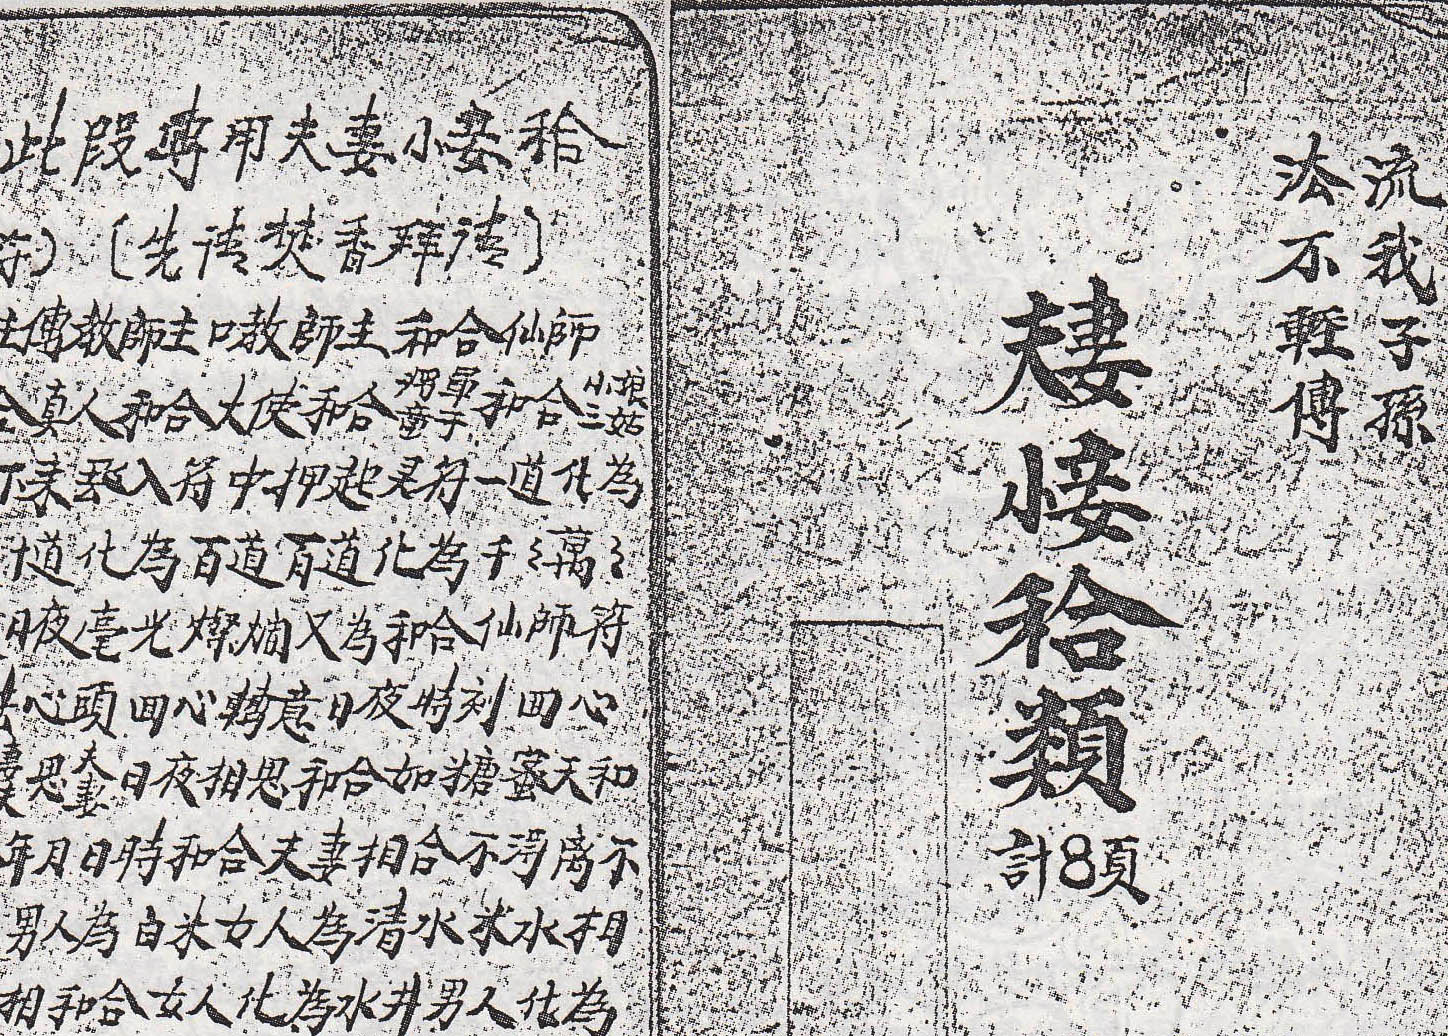 流我子孫
法不輕傳
夫妻小妾秴類
計8頁
此段專用夫妻小妾秴
符）（先請焚香拜請）
傳教師主口教師主和合仙師
合真人和合大使和合將軍童子和合小娘二姑
下來飛入符中押起灵符一道化為
十道化為百道百道化為千〻萬〻
日夜毫光燦爛又為和合仙師符
心頭回心轉意日夜時刻回心
思夫妻日夜相思和合如糖蜜天和
年月日時和合夫妻相合不淂离不
男人為白米女人為清水米水相
相和合女人化為水井男人化為